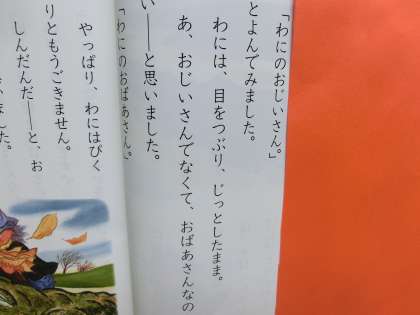 「わにのおじいさん。」
とよんでみました。
わには、目をつぶり、じっとしたまま。
あ、おじいさんでなくて、おばあさんなの
い――と思いました。
「わにのおばあさん。」
やっぱり、わにはぴく
りともうごきません。
しんだんだ――と、お
ました。